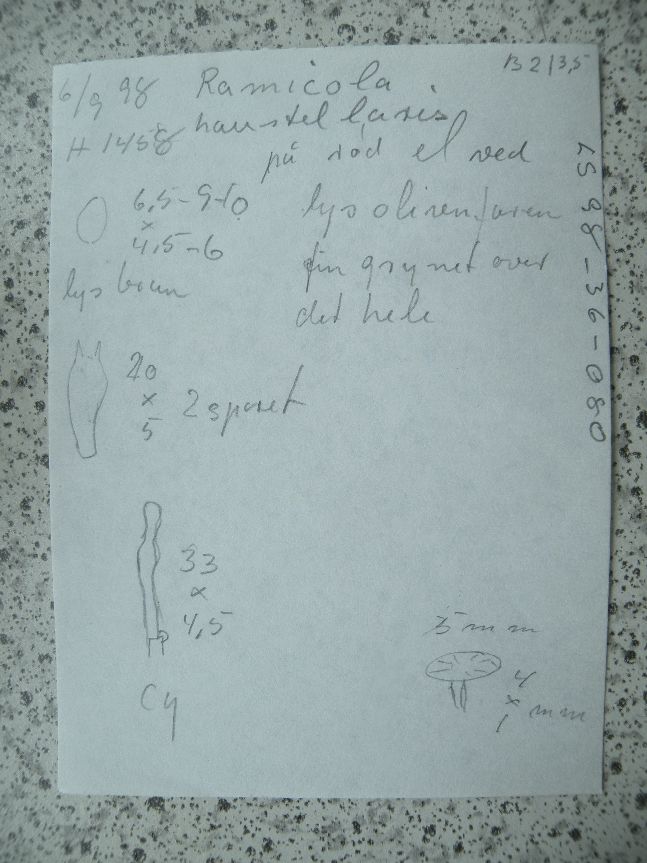 B 2 | 3,5
6/9 98 Ramicola
H 1458 haustellaris
på råd el ved
LS 98-36-080
6,5-9-10
x
4,5-6
lys brun
lys olivenfarven
fin grynet over
det hele
20
x
5
2 sporet
33
x
4,5
Cy
5 mm
4
x
1 mm